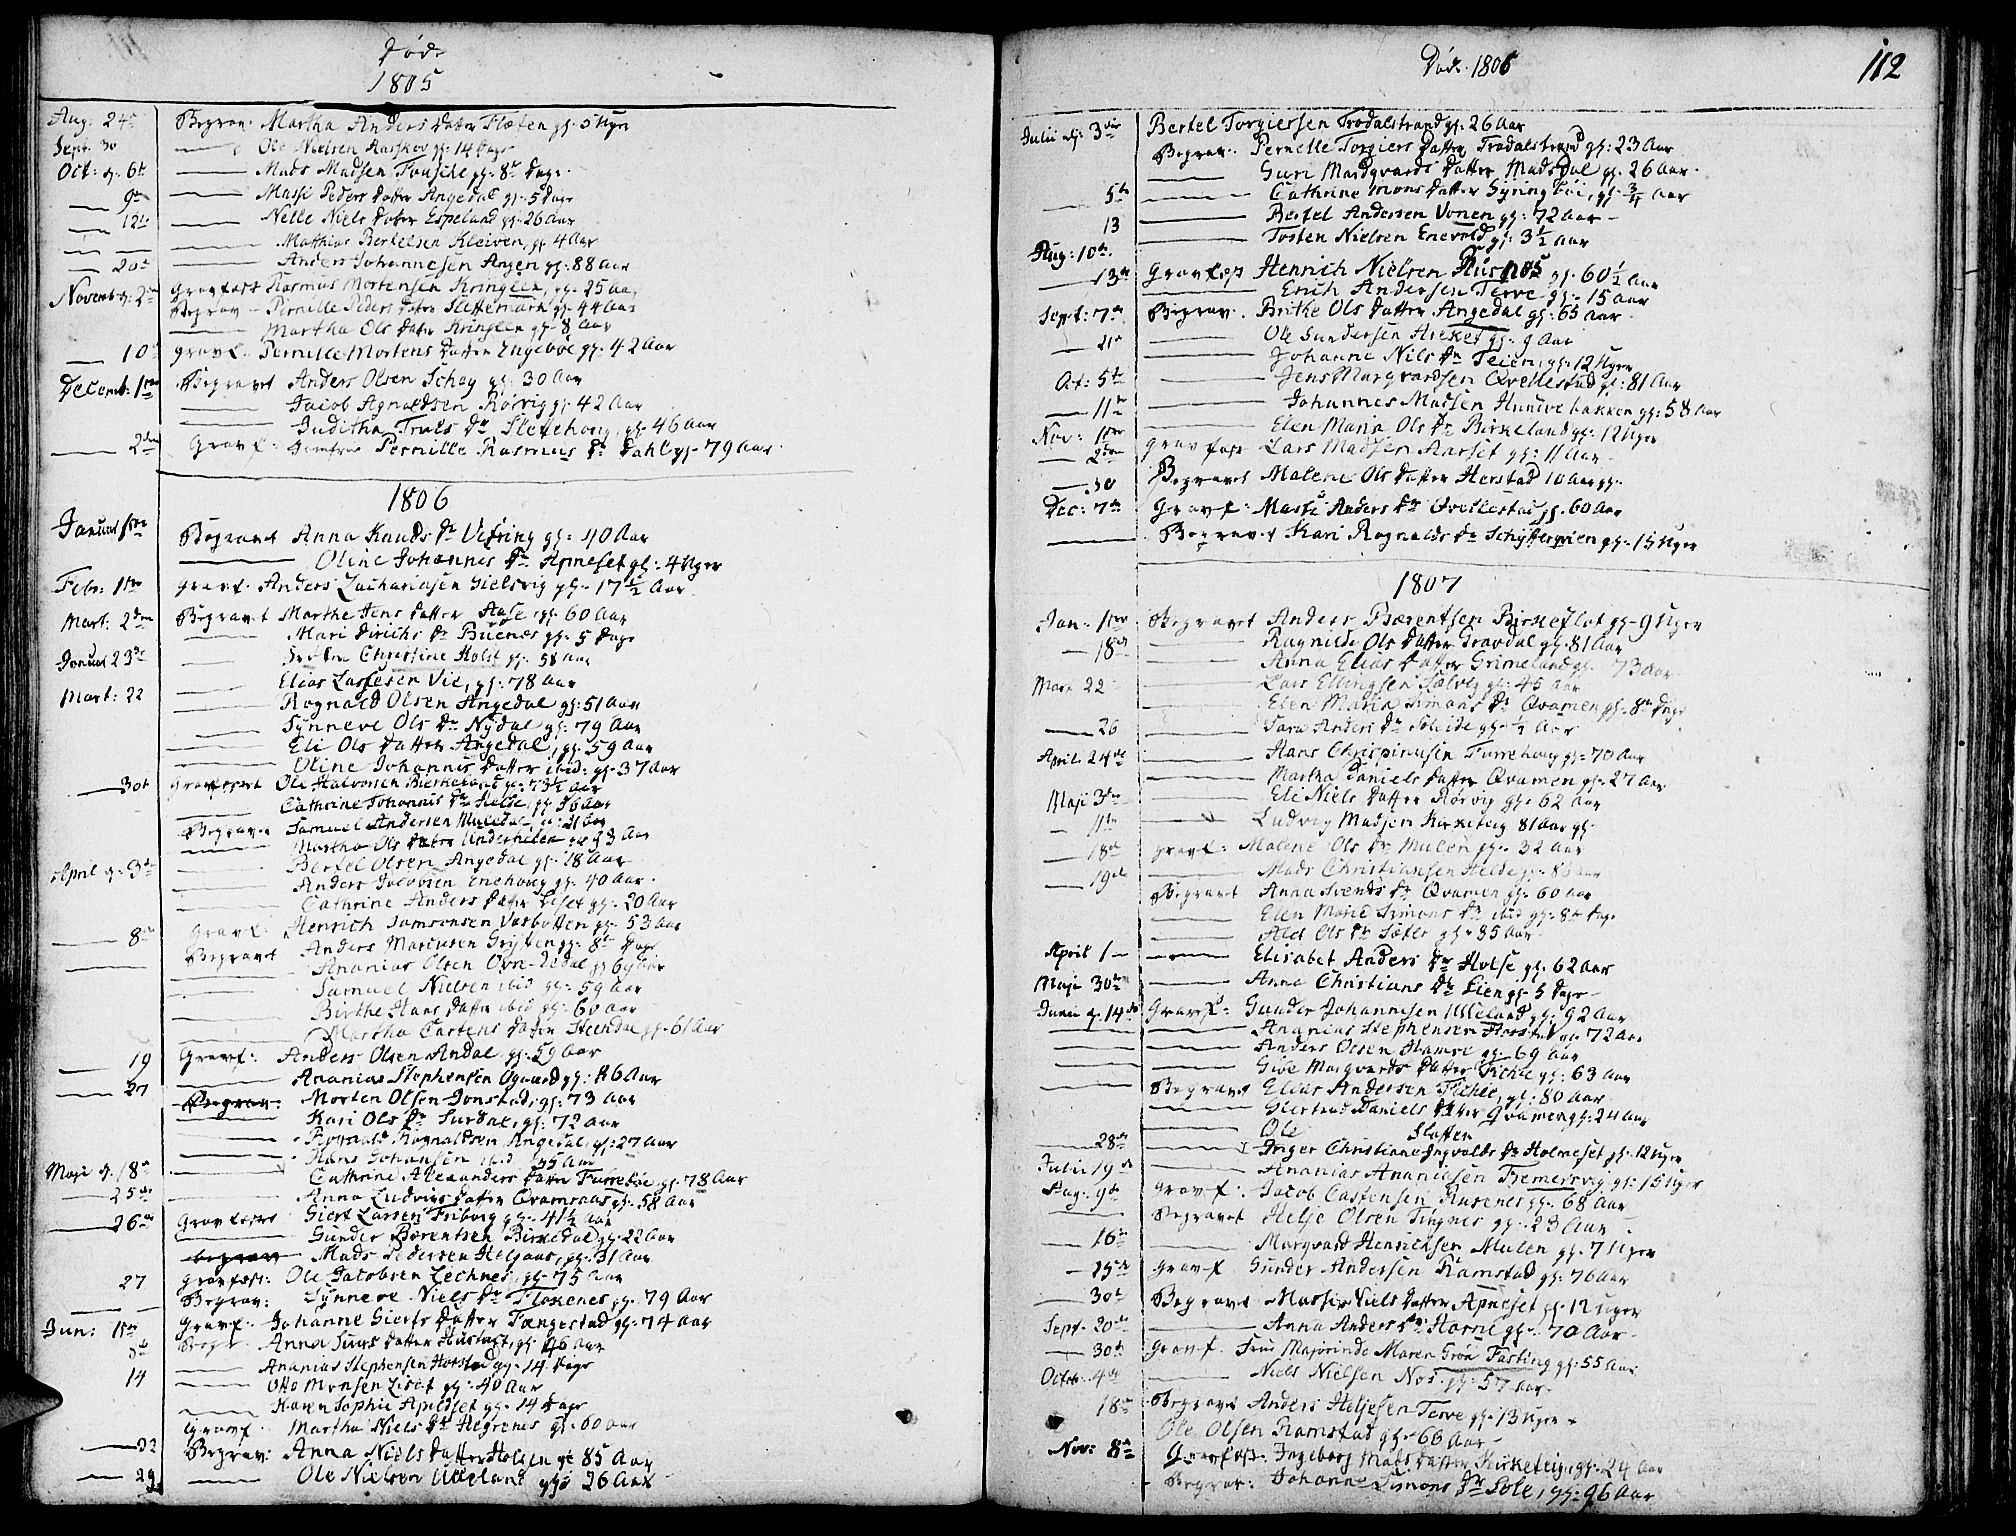 Död.
1805
Aug: 24 Begrav: Martha Anders Datter Flæten gl. 5 Uger
Sept. 30 Ole Nielsen Aarskov gl. 14 Dage
Oct: d. 6te Mads Madsen gl. 8te Dage
9de Massi Peders Datter Angedal gl. 5 Dage
12te Nelle Niels Datter Espeland gl. 26 Aar
Matthias Bertelsen Kleiven, gl. 4 Aar
20de Anders Johannesen Angen gl. 88 Aar
Novemb. d: 2den Gravfæst Rasmus Mortensen Kringlen, gl. 25 Aar
Begrav Pernille Peders Datter Slettemark gl. 44 Aar
Martha Ols Datter Kringlen gl. 8 Aar
10 gravf. Pernille Mortens Datter Engebøe gl. 42 Aar
Decemb: 1ste Begravet Anders Olsen Schey gl: 30 Aar
Jacob Agnaldsen Rørvig gl. 42 Aar
Juditha Truls Dr Slettehoug, gl. 46 Aar
2den Gravf: Pernille Rasmus Dr Dahl gl. 79 Aar.
1806
Januar 1ste Begravet Anna Knuds Dr Vefring gl. 40 Aar
Oline Johannes Dr Apneset gl. 4 Uger
Febr: 1ste gravf. Anders Zachariasen Gielsvig gl. 17½ Aar
Mart: 2den Begravet Marthe Jens Datter Aase, gl. 60 Aar
Mari Dirichs Dr Buenæs gl. 5 Dage
Januar 23de Christine Holst gl. 58 Aar
Elias Lassesen Vie, gl. 78 Aar
Mart: 22 Rognald Olsen Angedal gl. 51 Aar
Synneve Ols Dr Nydal gl. 79 Aar
Eli Ols Datter Angedal, gl. 59 Aar
Oline Johannis Datter ibid: gl. 37 Aar
30te Gravfæstet Ole Halvorsen Birkeland gl. 73½ Aar
Cathrine Johannis Dr Helle, gl. 36 Aar
Begravet Samuel Andersen Muledal, gl. 31 Aar
Martha Ols Datter Underhelen gl. 3 Aar
April d. 3de Bertel Olsen Angedal gl. 18 Aar
Anders Jacobsen Enehoug gl. 40 Aar.
Cathrine Anders Datter Liset gl. 20 Aar
Gravf: Henrich Samsonsen Vasbotten gl. 53 Aar
8de Begravet Anders Martusen Gryten gl. 8te Dage
Ananias Olsen gl. 69 Aar
Samuel Nielsen ibid gl. 59 Aar
Birthe Hans Datter ibid gl. 60 Aar
Martha Carstens Datter Steendal gl. 61 Aar
19 Gravf: Anders Olsen Andal, gl. 59 Aar
Ananias Stephensen Ogaard gl. 86 Aar
27 Begrav: Morten Olsen Jonstad, gl. 73 Aar
Kari Ols Dr Surdal, gl. 72 Aar
Rognald Rognaldsen Angedal, gl. 27 Aar
Hans Johansen ibid 55 Aar
Maji d. 18de Cathrine Alexanders Datter Furreböe gl. 78 Aar
25de Anna Ludvigs Datter Qvamsaas gl. 58 Aar
26de Gravfæstet Giert Larsen Friborg gl. 41½ Aar
Gunder Børentsen Birkedal gl. 22 Aar
begrav Mads Pedersen Helgaas, gl. 31 Aar
27 Gravfæst: Ole Jacobsen Lechnes, gl. 75 Aar
Begrav: Synneve Niels Dr Floxenes gl. 79 Aar
Jun: 1ste Gravf. Johanne Gierts Datter Tængestad gl. 74 Aar
Begr. Anna Datter gl. 46 Aar
Ananias Stephensen Horstad gl. 14 Dage
14 Otto Monsen Liset gl. 40 Aar
Karen Sophie Apneset gl. 14 Dage
Gravf. Martha Niels Dr Hegrenes gl. 60 Aar
22 Begrav: Anna Niels Datter Holsen gl. 85 Aar
29 Ole Nielsen Ulleland gl. 26 Aar
Död. 1806
112
Julii d: 3die Bertel Torgiersen Trodalstrand gl. 26 Aar
Begrav. Pernelle Torgiers Datter Trodalstrand gl. 23 Aar
Guri Mardqvards Datter Madsdal gl. 26 Aar.
5te Cathrine Mons Datter Syningböi, gl. ¾ Aar
13 Bertel Andersen Vonen gl: 72 Aar
Tosten Nielsen Enevold gl: 3½ Aar
Aug: 10de.
13de Gravfæst Henrich Nielsen Husnos gl. 60½ Aar
Erich Andersen Terve gl. 15 Aar
Sept: 7de Begrav. Brithe Ols Datter Angedal gl: 65 Aar.
21de Ole Gundersen gl. 9 Aar
Johanne Nils Dr Teien, gl. 12 Uger
Oct: 5te Jens Marqvardsen Qvellestad gl. 81 Aar
11te Johannes Madsen Hunsvebakken gl: 58 Aar
Elen Maria Ols Dr Birkeland gl: 12 Uger
Nov: 1ste
2den Gravfæst Lars Madsen Aarset gl. 11 Aar
30 Begravet Malene Ols Datter Herstad 10 Aar gl.
Dec: 7de Gravf: Massi Anders Dr Qvellestad gl. 60 Aar
Begravet Kari Rognalds Dr gl. 15 Uger
1807
Jan: 1ste Begravet Anders Børentsen Birkeflot gl. 9 Uger
18de Ragnilde Ols Datter Travdal gl. 81 Aar
Anna Elias Datter Grimeland gl. 73 Aar
Mart 22 Lars Ellingsen Sælvig gl. 45 Aar
Elen Maria Simons Dr Qvamen gl. 8te Dage
26 Sara Anders Dr Solside gl. ½ Aar
April 24de Hans Chrispinusen Furrehoug gl. 70 Aar
Martha Daniels Datter Qvamen gl. 27 Aar
Maji 3die Eli Niels Datter Rørvig gl. 62 Aar
11te Ludvig Madsen Kirketeig 81 Aar gl.
18de gravf: Malene Ols Dr Mulen gl. 32 Aar
19de Mads Christiansen Helde gl. Aar
Begravet Anna Svends Dr Qvamen gl. 60 Aar
Elen Marie Simons Dr ibid gl. 8te Dage
Ales Ols Dr Sæter gl. 85 Aar
April 1 Elisabet Anders Dr Holse gl. 62 Aar
Maji 30te Anna Christians Dr Lien gl. 5 Dage
Junii d. 14de Gravf: Gunder Johannesen Ulleland gl. 92 Aar
Ananias Stephensen Horstad gl. 72 Aar
Anders Olsen Hamre gl. 69 Aar
Give Marqvards Datter Fichte gl. 63 Aar
Begravet Elias Andersen Fichte, gl. 80 Aar
Giertrud Daniels Datter Qvamen gl. 24 Aar
Ole Slatten
28de Inger Christiane Ingvalds Dr Holmeset gl. 12 Uger
Julii 19de Ananias Ananiesen Fremersvig gl. 15 Uger
Aug. 9de gravf. Jacob Castensen Rusenes gl. 68 Aar
Begravet Helje Olsen Tingnes gl. 23 Aar
16de Marqvard Henrichsen Mulen gl. 7 Uger
15de gravf. Gunder Andersen Ramstad gl. 76 Aar
30te Begravet Massi Niels Datter Apneset gl. 12 Uger
Sept. 20de Anna Anders Dr Horne gl. 70 Aar
30te Gravf. Frue Majorinde Maren Grøn Fasting gl. 55 Aar
Octob. 4de Niels Nielsen Nos gl. 57 Aar
18de Begravet Anders Heljesen Terve gl. 13 Uger
Ole Olsen Ramstad gl. 60 Aar
Nov: 8de Gravfæst Ingeborg Mads Datter Kirketeig, gl. 24 Aar
Begrav: Johanne Simons Dr Sole, gl: 96 Aar